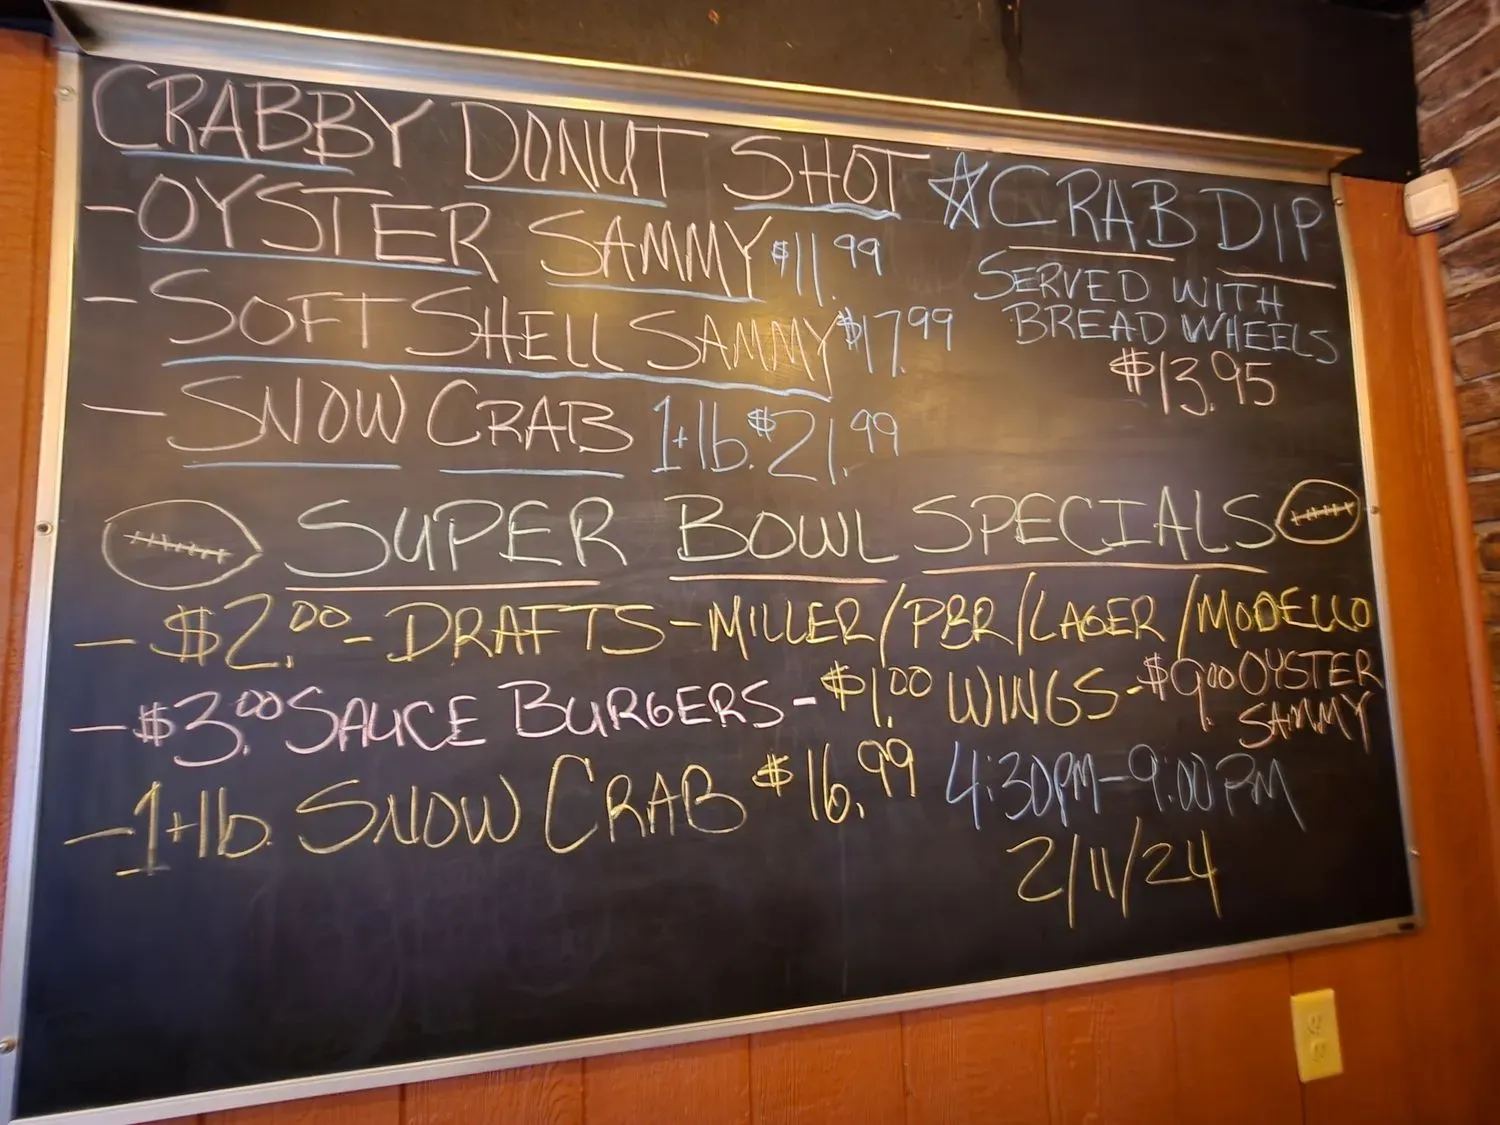 CRABBY DONUT SHOT
-OYSTER SAMMY $11.99
-SOFT SHELL SAMMY $17.99
-SNOW CRAB 1+lb. $21.99
☆CRAB DIP
SERVED WITH
BREAD WHEELS
$13.95
SUPER BOWL SPECIALS
-$2.00-DRAFTS-MILLER/PBR/LAGER/MODELLO
-$3.00 SAUCE BURGERS-$1.00 WINGS-$9.00 OYSTER
SAMMY
-1+lb. SNOW CRAB $16.99
4:30PM-9:00PM
2/11/24